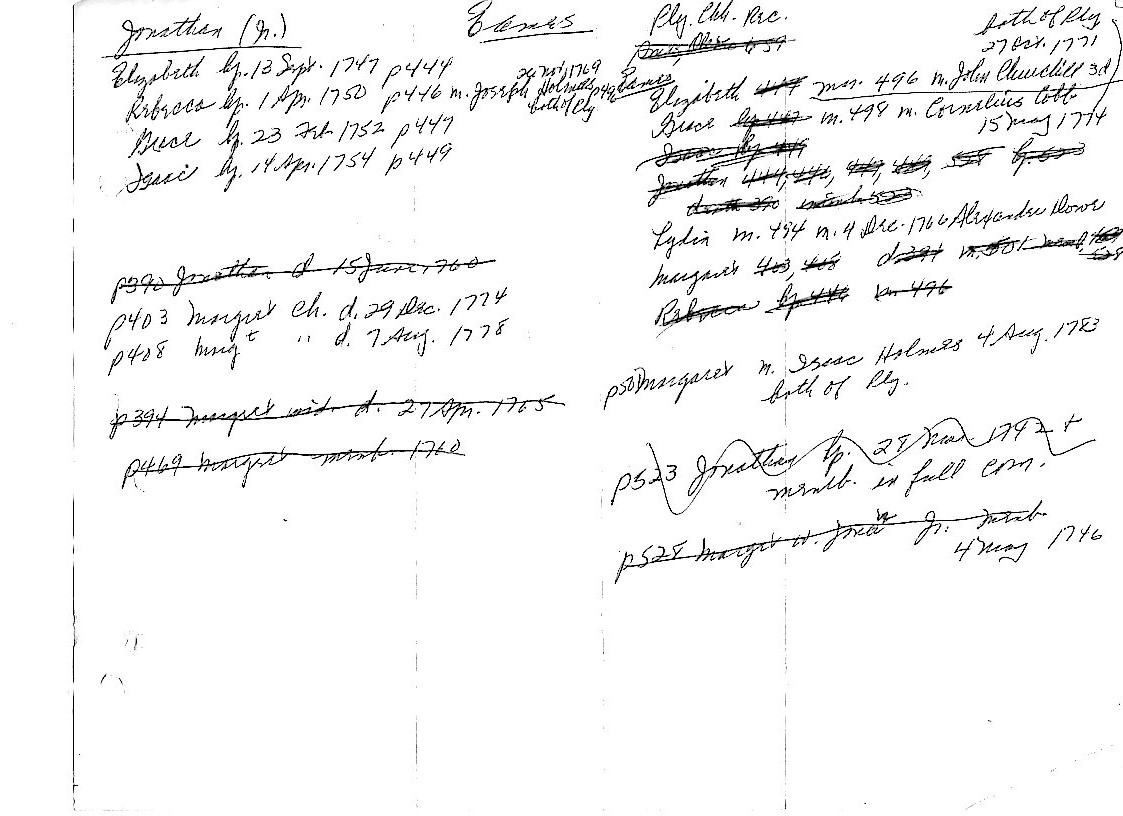 Jonathan (Jr.)
Eames
Ply. Chh. Rec.
both of Ply
27 Oct. 1771
Elizabeth bp. 13 Sept. 1747 p444
Rebecca bp. 1 Apr. 1750 p446 m. Joseph Holmes p496
24 Nov 1769
both of Ply
Grace bp. 23 Feb 1752 p447
Isaac bp. 14 Apr. 1754 p449
Eames,
Elizabeth 444 mar. 496 m. John Churchill 3d
Grace bp 447 m. 498 m. Cornelius Cobb
15 May 1774
Isaac bp 449
Jonathan 444, 446, 447, 449, 528 bp. 523
death 390 memb 523
Lydia m. 494 m. 4 Dec. 1766 Alexander Howe
Margaret 403, 408 d 394 m. 501 memb. 469
528
Rebecca bp 446 m. 496
p390 Jonathan d 15 June 1760
p403 Margret Ch. d. 29 Dec. 1774
p408 Marg t " d. 7 Aug. 1778
p394 Margret wid. d. 27 Apr. 1765
p469 Margret memb. 1760
p501 Margaret m. Isaac Holmes 4 Aug. 1783
both of Ply.
p523 Jonathan bp. 28 Mar. 1742 +
memb. in full Com.
p528 Margret w. Jona n Jr. memb.
4 May 1746